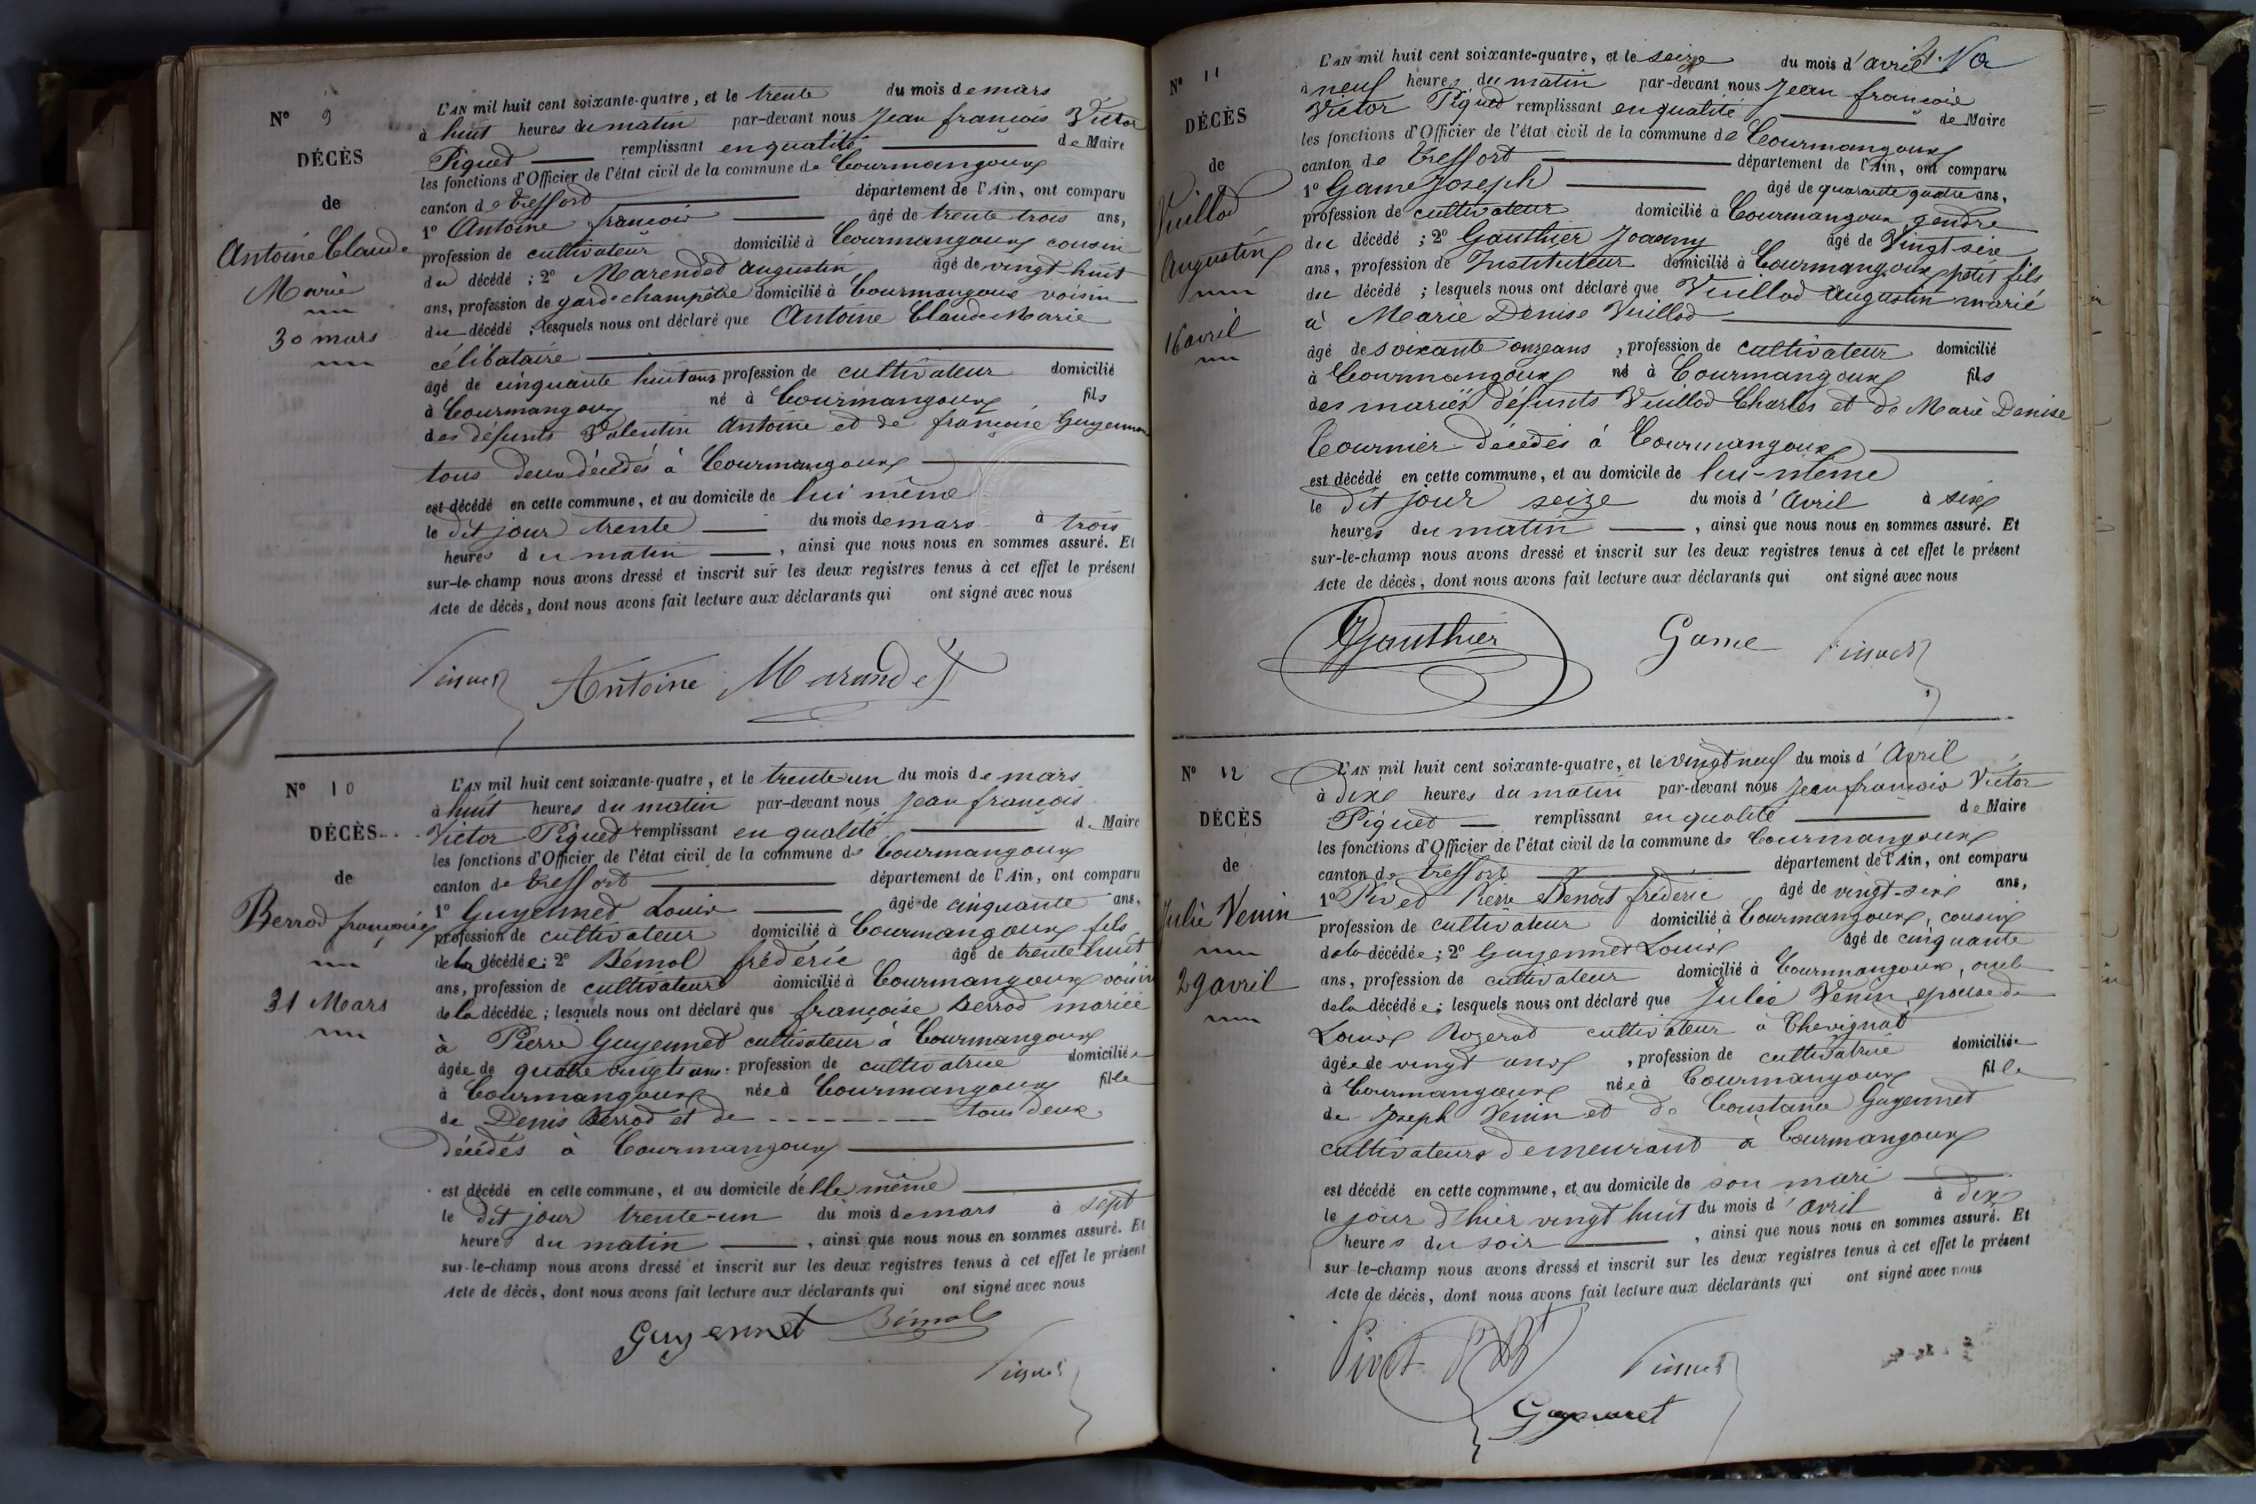 N° 9
DÉCÈS
de
Antoine Claude
Marie
30 mars
L'AN mil huit cent soixante-quatre, et le trente du mois de mars
à huit heures du matin par-devant nous Jean françois Victor
Piquet remplissant en qualité de Maire
les fonctions d'Officier de l'état civil de la commune de Courmangoux
canton de treffort département de l'Ain, ont comparu
1° Antoine françois âgé de trente trois ans,
profession de cultivateur domicilié à Courmangoux cousin
du décédé ; 2° Marendet augustin âgé de vingt huit
ans, profession de garde champêtre domicilié à Courmangoux voisin
du décédé ; lesquels nous ont déclaré que Antoine Claude Marie
célibataire
âgé de cinquante huit ans profession de cultivateur domicilié
à Courmangoux né à Courmangoux fils
des défunts Valentin Antoine et de françoise Guyennet
tous deux décédés à Courmangoux
est décédé en cette commune, et au domicile de lui même
le dit jour trente du mois de mars à trois
heures du matin , ainsi que nous nous en sommes assuré. Et
sur-le-champ nous avons dressé et inscrit sur les deux registres tenus à cet effet le présent
Acte de décès, dont nous avons fait lecture aux déclarants qui ont signé avec nous
Antoine Marandet
N° 10
DÉCÈS
de
Berrod françoise
31 Mars
L'AN mil huit cent soixante-quatre, et le trente-un du mois de mars
à huit heures du matin par-devant nous Jean françois
Victor Piquet remplissant en qualité de Maire
les fonctions d'Officier de l'état civil de la commune de Courmangoux
canton de treffort département de l'Ain, ont comparu
1° Guyennet Louis âgé de cinquante ans,
profession de cultivateur domicilié à Courmangoux fils
de la décédée ; 2° Bémol fréderic âgé de trente huit
ans, profession de cultivateur domicilié à Courmangoux voisin
de la décédée ; lesquels nous ont déclaré que françoise Berrod mariée
à Pierre Guyennet cultivateur à Courmangoux
âgée de quatre vingts ans profession de cultivatrice domiciliée
à Courmangoux née à Courmangoux fille
de Denis Berrod et de tous deux
décédés à Courmangoux
est décédé en cette commune, et au domicile d'elle même
le dit jour trente-un du mois de mars à sept
heures du matin , ainsi que nous nous en sommes assuré. Et
sur-le-champ nous avons dressé et inscrit sur les deux registres tenus à cet effet le présent
Acte de décès, dont nous avons fait lecture aux déclarants qui ont signé avec nous
Guyennet Bémol
N° 11
DÉCÈS
de
Vuillod
Augustin
16 avril
L'AN mil huit cent soixante-quatre, et le seize du mois d'avril
à neuf heures du matin par-devant nous Jean françois
Victor Piquet remplissant en qualité de Maire
les fonctions d'Officier de l'état civil de la commune de Courmangoux
canton de treffort département de l'Ain, ont comparu
1° Game Joseph âgé de quarante quatre ans,
profession de cultivateur domicilié à Courmangoux gendre
du décédé ; 2° Gauthier Joanny âgé de Vingt six
ans, profession de Instituteur domicilié à Courmangoux petit fils
du décédé ; lesquels nous ont déclaré que Vuillod augustin marié
à Marie Denise Vuillod
âgé de soixante onze ans , profession de cultivateur domicilié
à Courmangoux né à Courmangoux fils
des mariés défunts Vuillod Charles et de Marie Denise
Tournier décédés à Courmangoux
est décédé en cette commune, et au domicile de lui-même
le dit jour seize du mois d'Avril à six
heures du matin , ainsi que nous nous en sommes assuré. Et
sur-le-champ nous avons dressé et inscrit sur les deux registres tenus à cet effet le présent
Acte de décès, dont nous avons fait lecture aux déclarants qui ont signé avec nous
Gauthier Game
N° 12
DÉCÈS
de
Julie Venin
29 avril
L'AN mil huit cent soixante-quatre, et le vingt neuf du mois d'Avril
à dix heures du matin par-devant nous Jean françois Victor
Piquet remplissant en qualité de Maire
les fonctions d'Officier de l'état civil de la commune de Courmangoux
canton de treffort département de l'Ain, ont comparu
1° Pivet Pierre Benoit fréderic âgé de vingt-six ans,
profession de cultivateur domicilié à Courmangoux, cousin
de la décédée ; 2° Guyennet Louis âgé de cinquante
ans, profession de cultivateur domicilié à Courmangoux, oncle
de la décédée ; lesquels nous ont déclaré que Julie Venin épouse de
Louis Rozerod cultivateur à Chevignat
âgée de vingt ans , profession de cultivatrice domiciliée
à Courmangoux née à Courmangoux fille
de Joseph Venin et de Constance Guyennet
cultivateurs demeurant à Courmangoux
est décédé en cette commune, et au domicile de son mari
le jour d'hier vingt huit du mois d'avril à dix
heures du soir , ainsi que nous nous en sommes assuré. Et
sur-le-champ nous avons dressé et inscrit sur les deux registres tenus à cet effet le présent
Acte de décès, dont nous avons fait lecture aux déclarants qui ont signé avec nous
Pivet